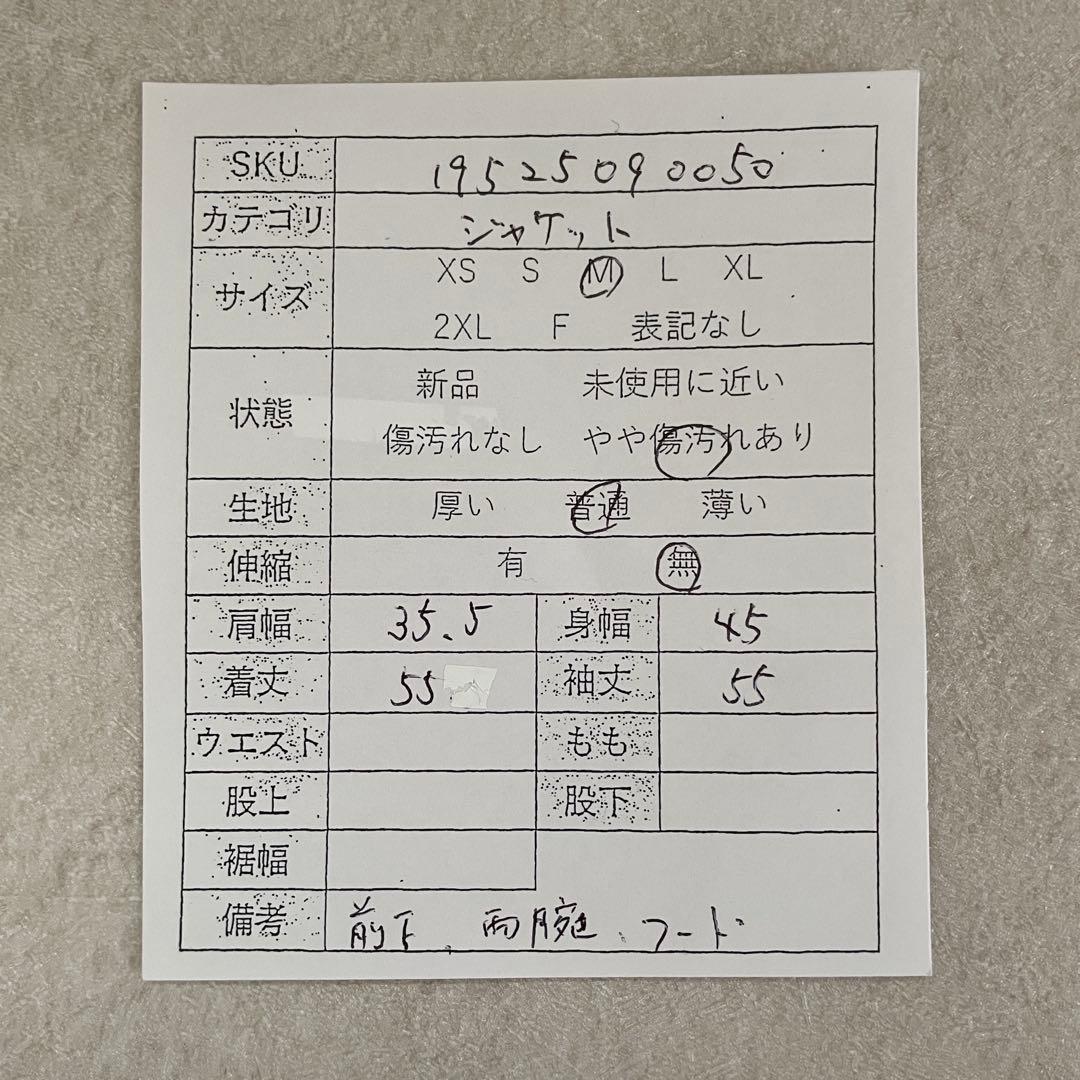 SKU 19525090050
カテゴリ ジャケット
サイズ XS S M L XL
2XL F 表記なし
状態 新品 未使用に近い
傷汚れなし やや傷汚れあり
生地 厚い 普通 薄い
伸縮 有 無
肩幅 35.5 身幅 45
着丈 55 袖丈 55
ウエスト もも
股上 股下
裾幅
備考 前下、両腕、フード